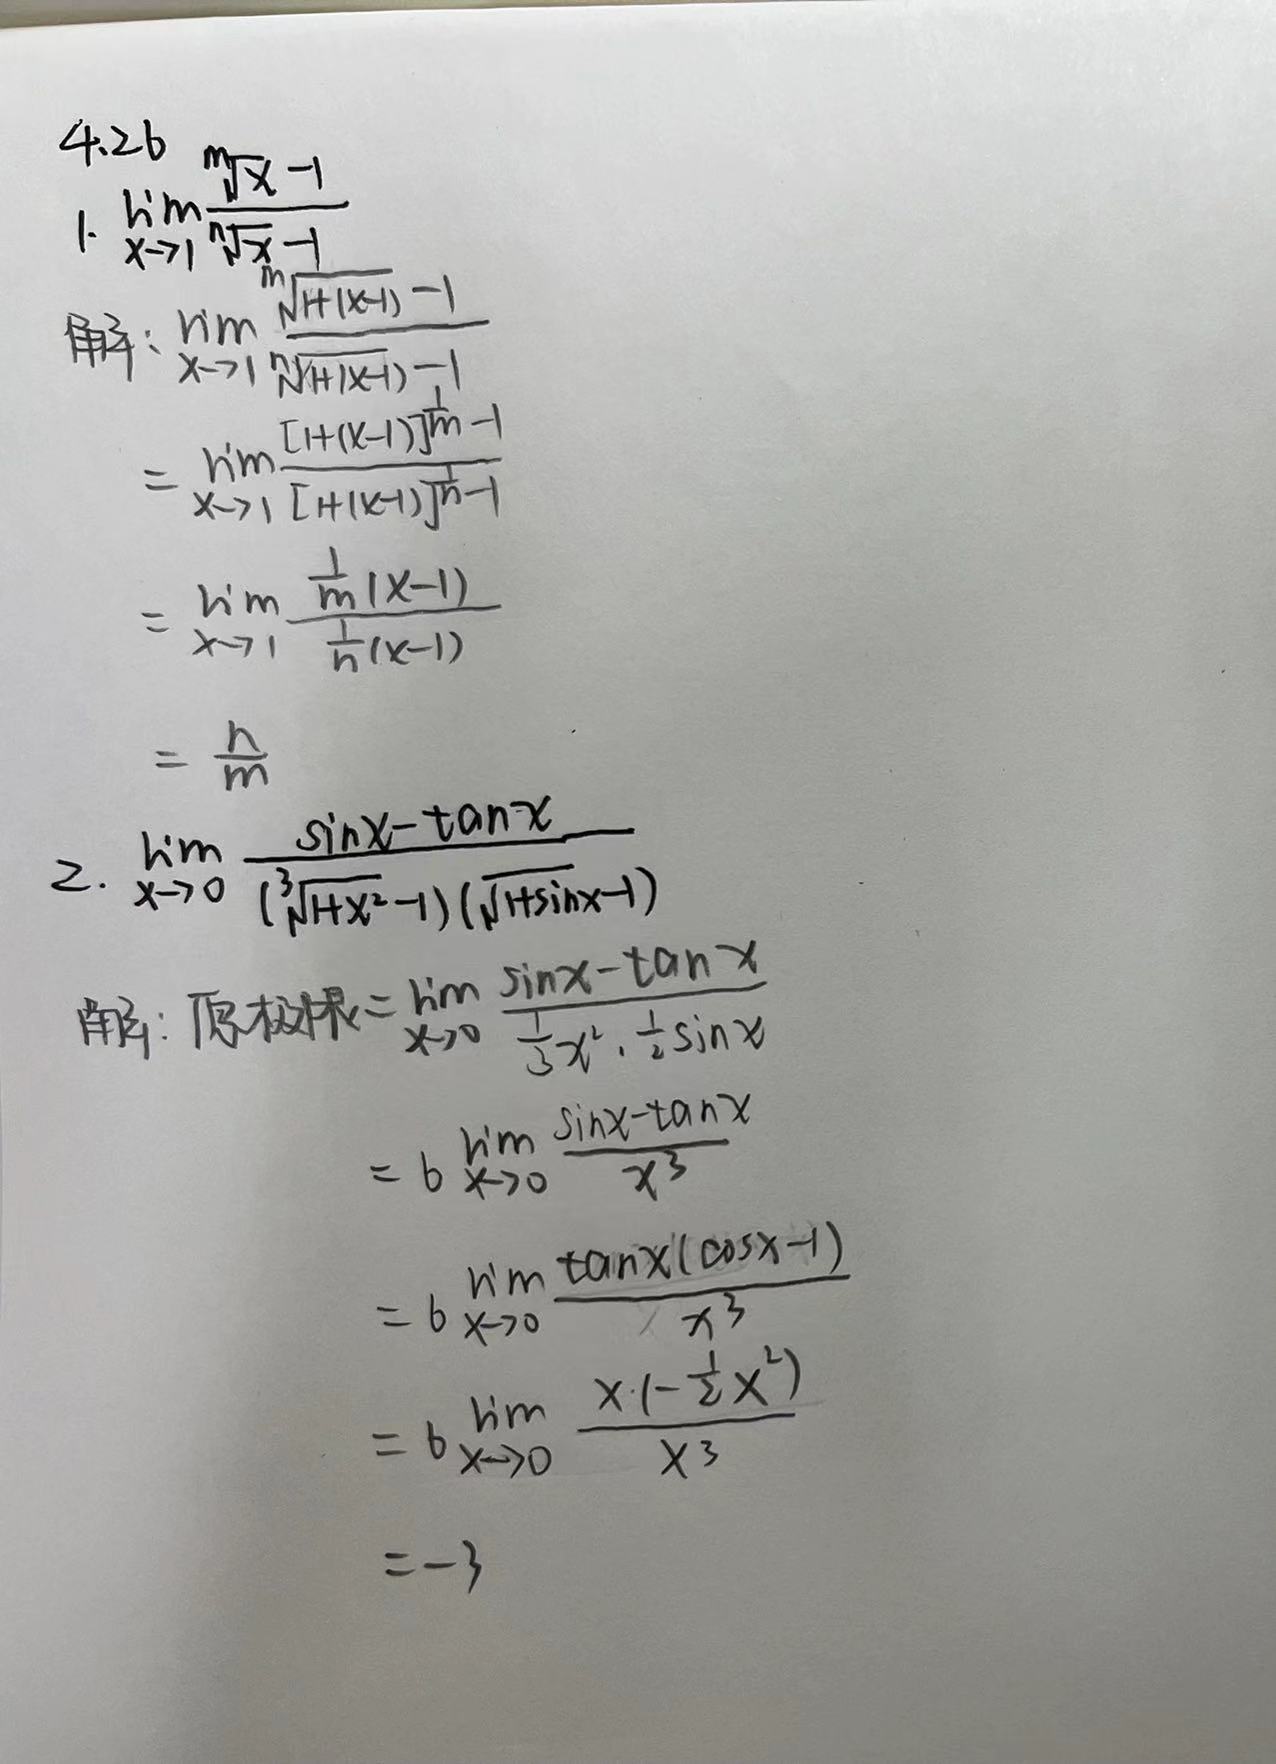 4.26
1. lim_{x→1} (ᵐ√x - 1)/(ⁿ√x - 1)
解: lim_{x→1} (ᵐ√(1+(x-1)) - 1)/(ⁿ√(1+(x-1)) - 1)
= lim_{x→1} ([1+(x-1)]^{1/m} - 1)/([1+(x-1)]^{1/n} - 1)
= lim_{x→1} (1/m (x-1))/(1/n (x-1))
= n/m
2. lim_{x→0} (sinx - tanx)/((³√(1+x²) - 1)(√(1+sinx) - 1))
解: 原极限 = lim_{x→0} (sinx - tanx)/(1/3 x² · 1/2 sinx)
= 6 lim_{x→0} (sinx - tanx)/x³
= 6 lim_{x→0} tanx(cosx - 1)/x³
= 6 lim_{x→0} x·(-1/2 x²)/x³
= -3